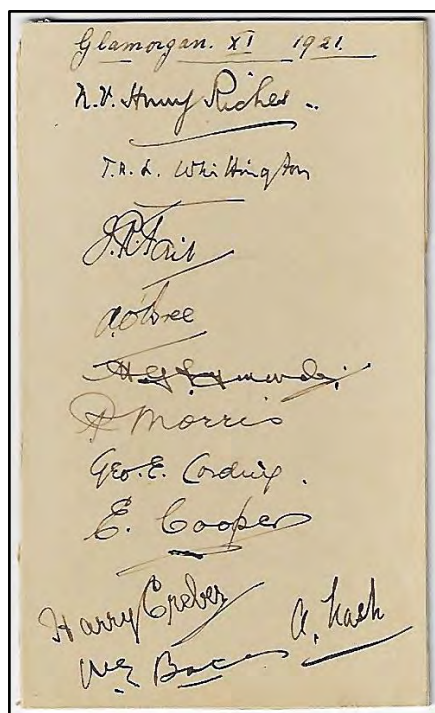 Glamorgan. XI 1921.
N.V. Henry Riches ..
T.A.L. Whittington
J.R. Tait
A. O'Bree
H.G. Symonds.
P Morris
Geo. E. Cording.
E. Cooper
Harry Creber
A. Nash
W E Bates